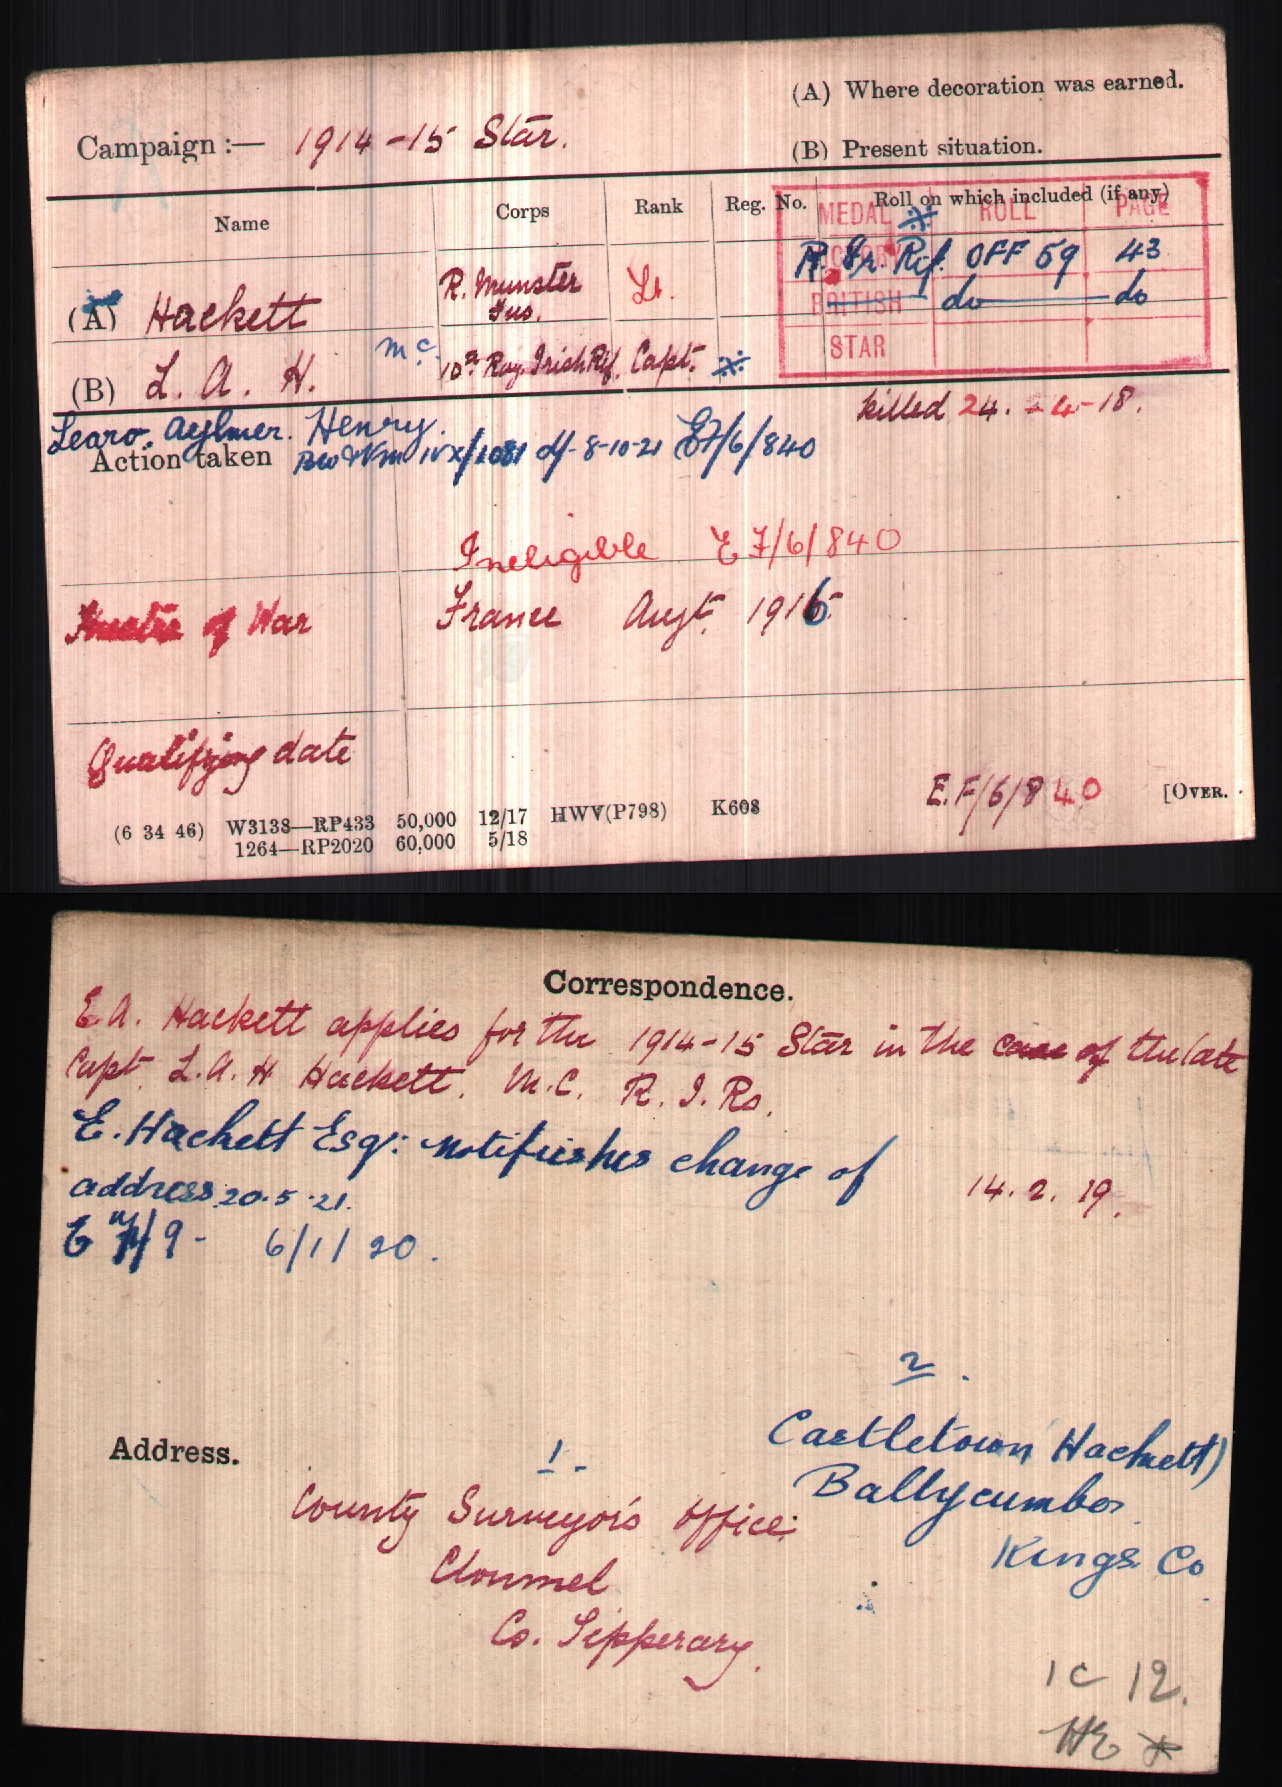 (A) Where decoration was earned.
Campaign :— 1914-15 Star.
(B) Present situation.
Name Corps Rank Reg. No. Roll on which included (if any)
MEDAL ROLL PAGE
R. Ir. Rif. OFF 59 43
(A) Hackett R. Munster Fus. Lt.
BRITISH do do
STAR
(B) L. A. H. M.C. 10th Roy. Irish Rif. Capt. ※
killed 24. 4-18.
Learo. Aylmer. Henry.
Action taken BW & Vm IVX/1081 d/- 8-10-21 E7/6/840
Ineligible E7/6/840
Theatre of War France Augt. 1916
Qualifying date
E.F/6/840 [OVER.
(6 34 46) W3138—RP433 50,000 12/17 HWV(P798) K608
1264—RP2020 60,000 5/18
Correspondence.
E.A. Hackett applies for the 1914-15 Star in the case of the late
Capt. L.A.H Hackett. M.C. R. I. Rs.
E. Hackett Esq: notifies his change of
address. 20.5.21.
14.2.19.
6/1/20.
2
Castletown Hackett)
Address.
1.
Ballycumber
County Surveyor's Office:
Kings Co
Clonmel
Co. Tipperary.
1C 12.